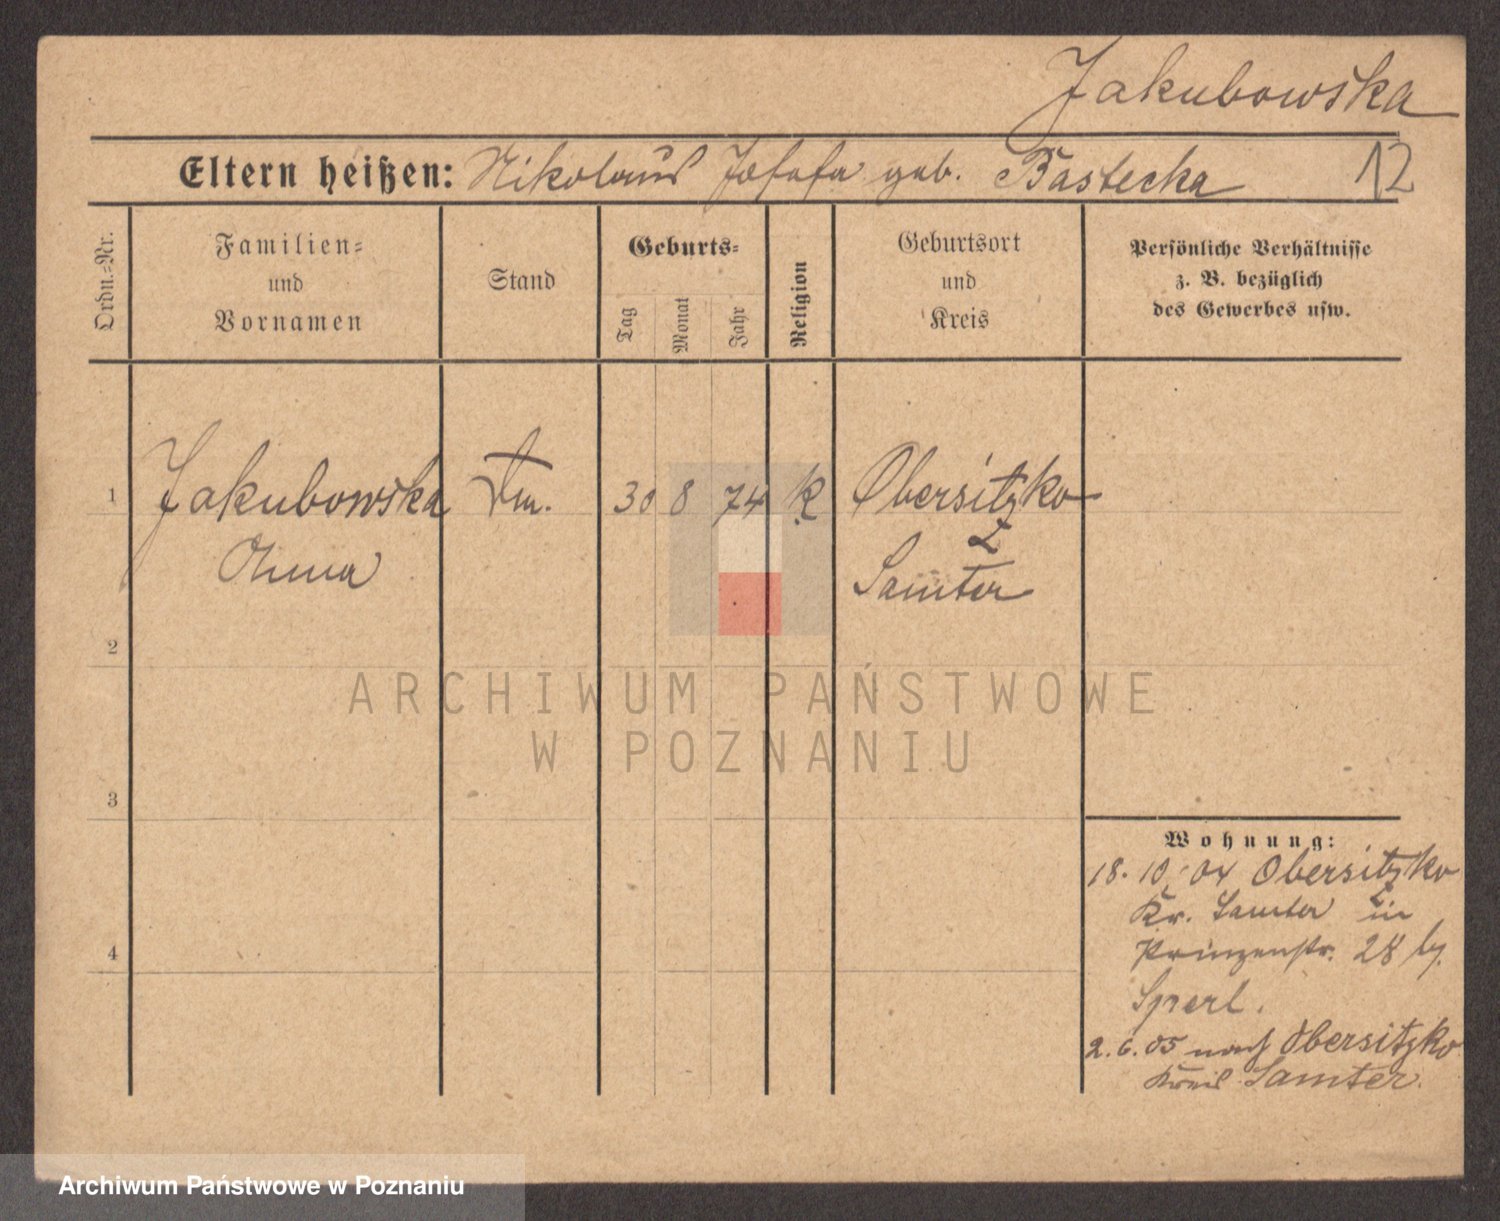 Jakubowska
Eltern heißen: Nikolaus Josefa geb. Bastecka
12
Ordn.=Nr.
Familien=
und
Vornamen
Stand
Geburts=
Tag
Monat
Jahr
Religion
Geburtsort
und
Kreis
Persönliche Verhältnisse
z. B. bezüglich
des Gewerbes usw.
1
Jakubowska
30 8 74 k
Obersitzko
Anna
Samter
2
ARCHIWUM PAŃSTWOWE
W POZNANIU
3
Wohnung:
18. 10. 04 Obersitzko
Kr. Samter in
4
Prinzenstr. 28 bj.
Sperl.
2. 6. 05 nach Obersitzko
Kreis Samter.
Archiwum Państwowe w Poznaniu